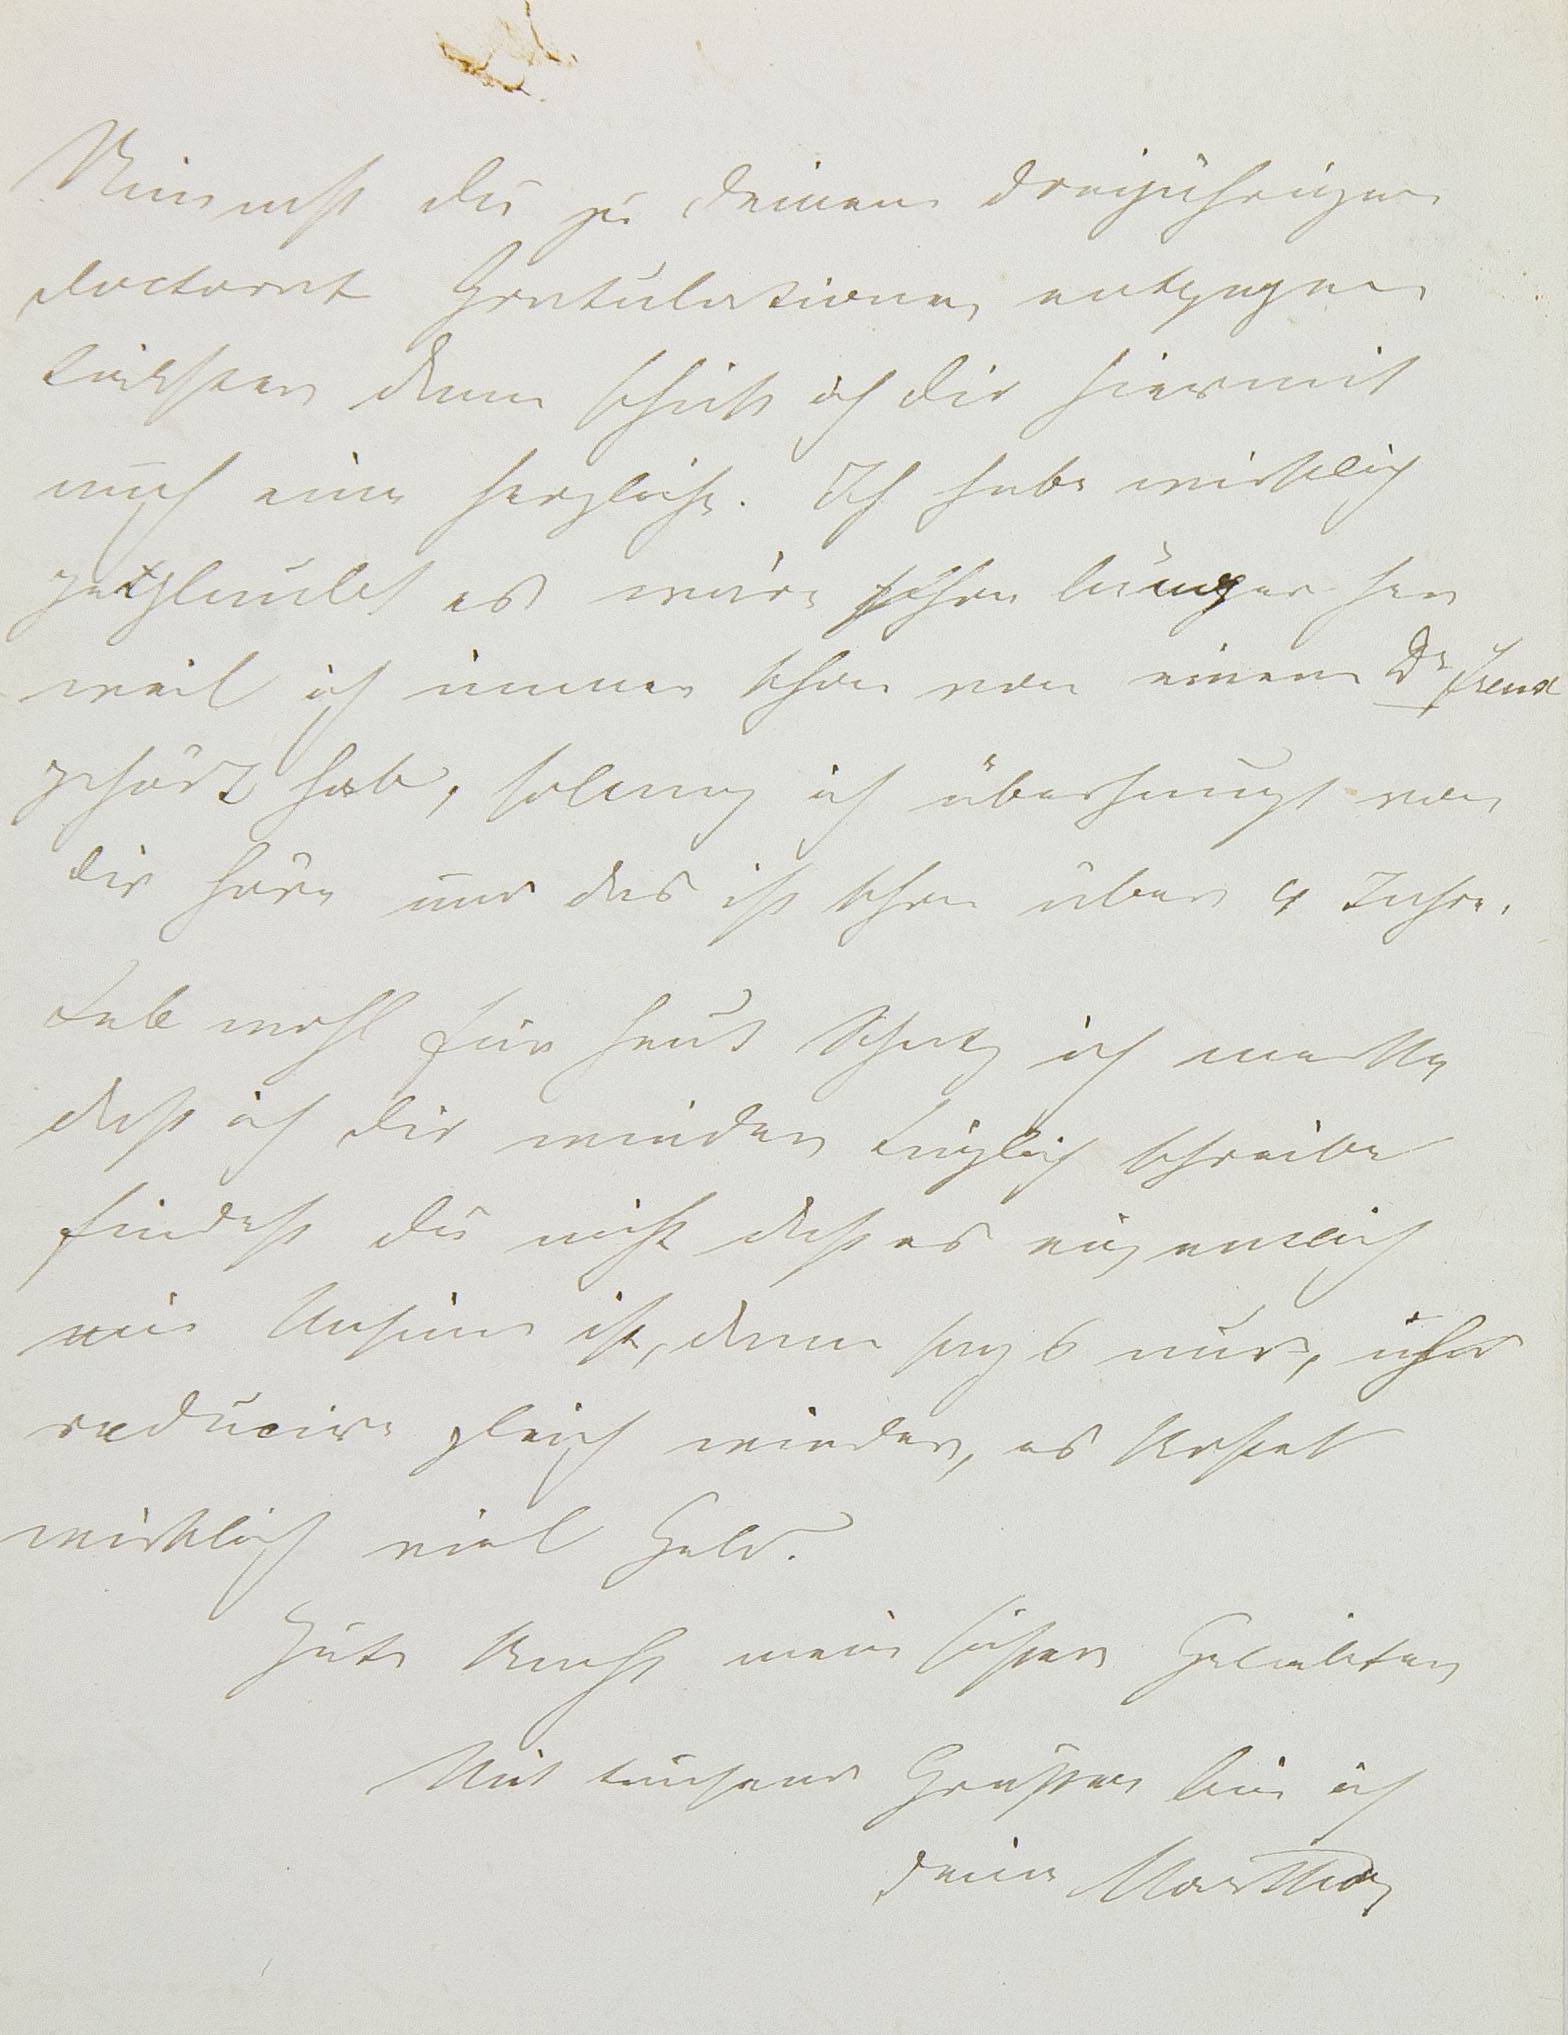 Nimmst du zu deinem dreijährigen
doctorat Gratulationen entgegen
Liebster dann schick ich dir hiermit
auch eine herzliche. Ich habe wirklich
geglaubt es wäre schon länger her
weil ich immer schon von einem Dr Freud
gehört hab, solang ich überhaupt von
dir höre und das ist schon über 4 Jahre.
Leb wohl für heut Schatz ich merke
daß ich dir wieder täglich schreibe
findest du nicht daß es eigentlich
ein Unsinn ist, dann sag's nur, ich
reducire gleich wieder, es kostet
wirklich viel Geld.
Gute Nacht mein süßer Geliebter
Mit tausend Grüßen bin ich
deine Martha